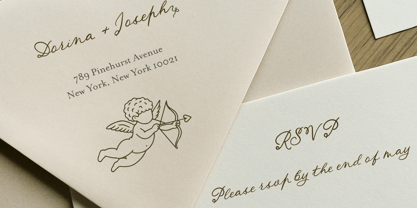 Dorina + Joseph
789 Pinehurst Avenue
New York, New York 10021
RSVP
Please rsvp by the end of may